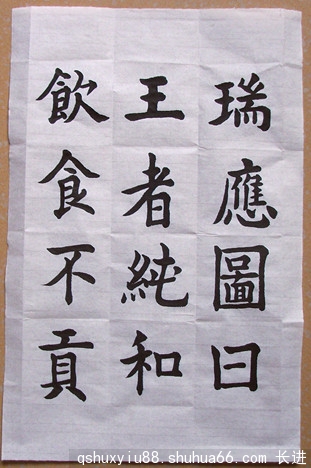 瑞應圖曰
王者純和
飲食不貢
qshuxyiu88.shuhua66.com 长进